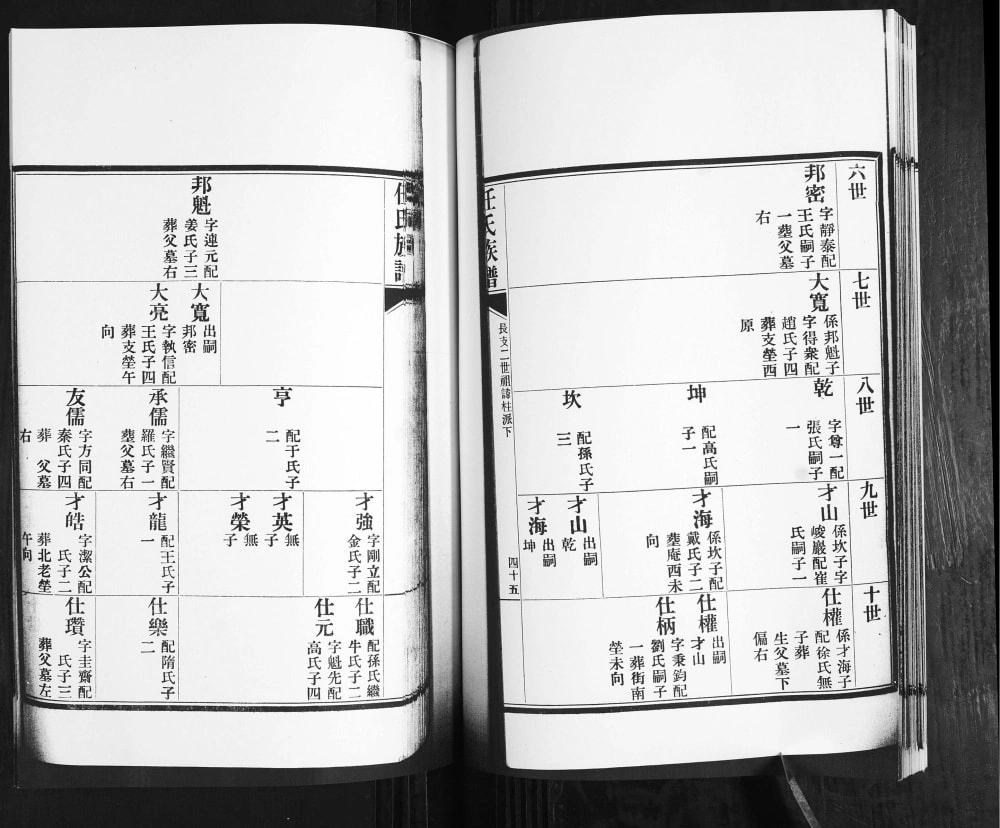 六世
邦密
字靜泰配
王氏嗣子
一塟父墓
右
七世
大寬
係邦魁子
字得衆配
趙氏子四
葬支塋西
原
八世
乾
字尊一配
張氏嗣子
一
坤
配高氏嗣
子一
坎
配孫氏子
三
九世
才山
係坎子字
峻嚴配崔
氏嗣子一
才海
係坎子配
戴氏子二
塟庵西未
向
才山
出嗣
乾
才海
出嗣
坤
十世
仕權
係才海子
配徐氏無
子葬
生父墓下
偏右
仕權
出嗣
才山
仕柄
字秉鈞配
劉氏嗣子
一葬街南
塋未向
任氏族譜
長支二世祖諱柱派下
四十五
任氏族譜
邦魁
字連元配
姜氏子三
葬父墓右
大寬
出嗣
邦密
大亮
字執信配
王氏子四
葬支塋午
向
亨
配于氏子
二
承儒
字繼賢配
羅氏子一
塟父墓右
友儒
字方同配
秦氏子四
葬父墓
右
才強
字剛立配
金氏子二
才英
無
子
才榮
無
子
才龍
配王氏子
一
才皓
字潔公配
氏子二
葬北老塋
午向
仕職
配孫氏繼
牛氏子二
仕元
字魁先配
高氏子四
仕樂
配隋氏子
二
仕瓚
字圭齋配
氏子三
葬父墓左